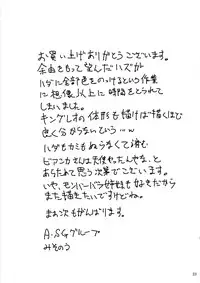 お買い上げありがとうございます。
余白をもって望んだハズが
ハダに全部色をのっけるという作業
に想像以上に時間をとられて
しまいました。
キングレオの体形も描けば描くほど
良く分からないという…w
ハダもカミもぬらなくて済む
ビアンカさんは天使やったんやな、と
あらためて思う次第でございます。
いや、モンバーバラ姉妹も好きだから
また描きたいですけどね。
まぁ次もがんばります。
A・SGグループ
みそのう